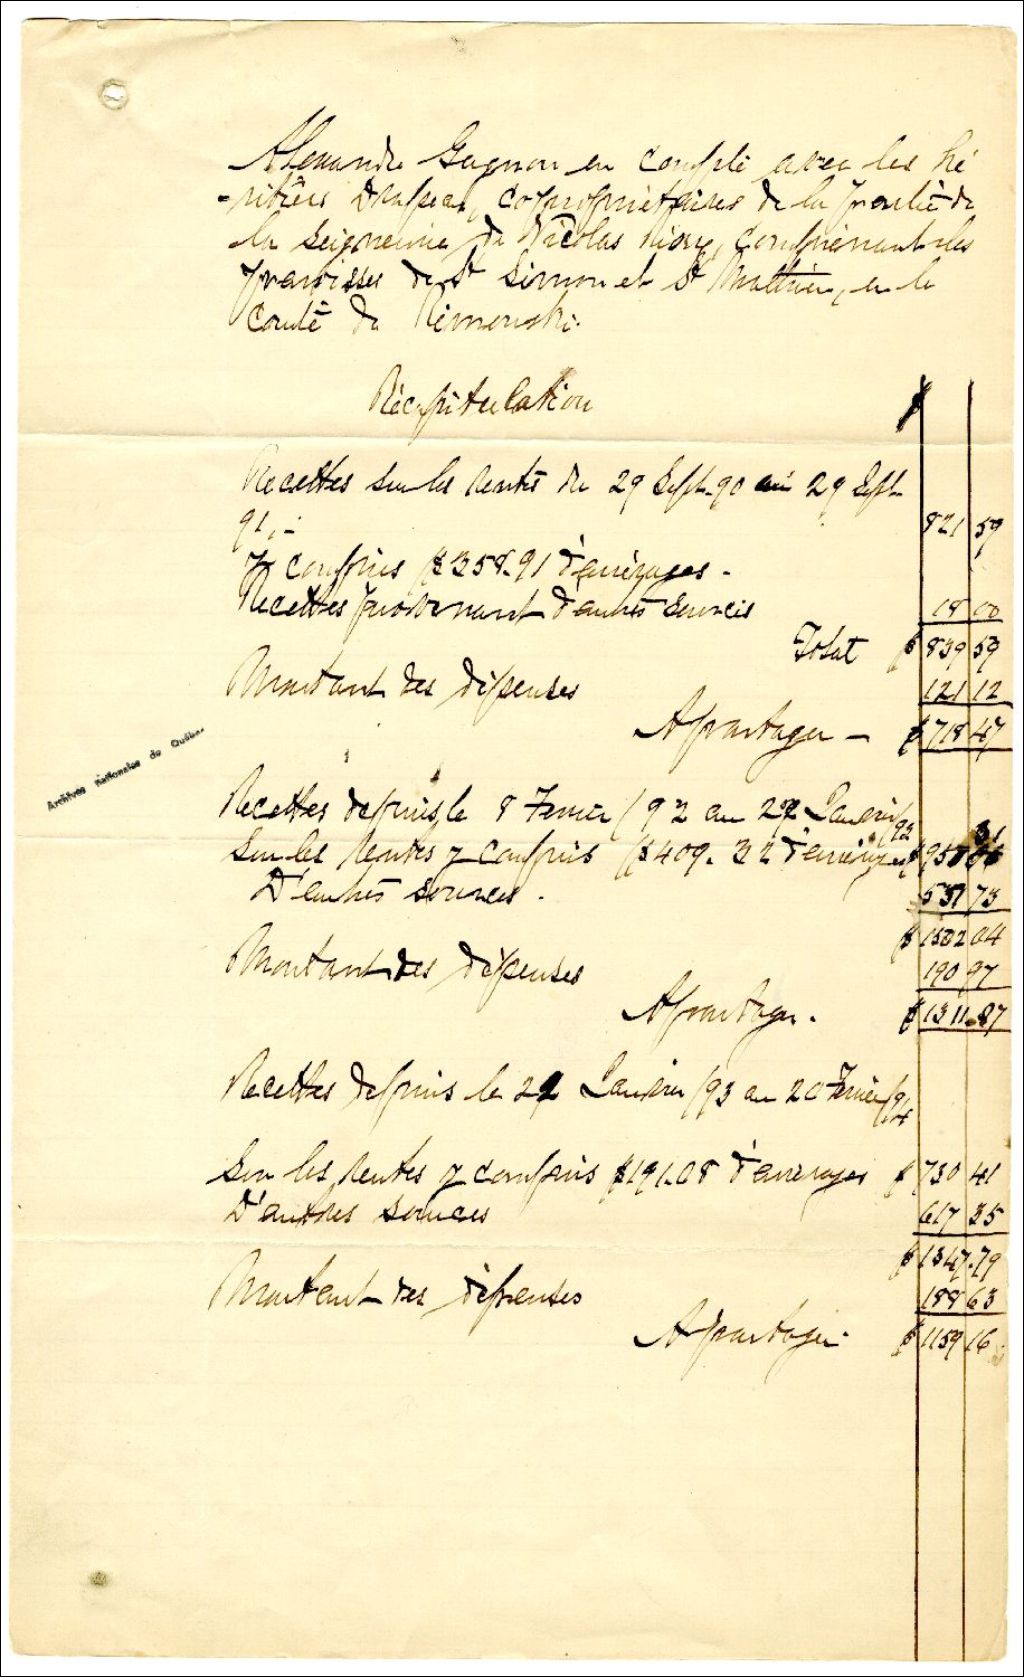 Alexandre Gagnon en compte avec les hé
-ritiers Drapeau, copropriétaires de la partie de
la Seigneurie de Nicolas Rioux, comprenant les
paroisses de St Simon et St Mathieu, en le
Comté de Rimouski.
Récapitulation
$
Recettes sur les rentes du 29 Sept. 90 au 29 Sept.
91,- 821 59
y compris $358.91 d'arrérages -
Recettes provenant d'autres sources 18 00
Total $ 839 59
Montant des dépenses 121 12
A partager - $ 718 47
Archives nationales du Québec
Recettes depuis le 8 Fevrier /92 au 22 Janvier /93
Sur les rentes y compris $409.32 d'arrérages $ 950 31
D'autres sources. 551 73
$ 1502 04
Montant des dépenses 190 97
A partager. $ 1311.87
Recettes depuis le 22 Janvier /93 au 20 Fevrier /94
Sur les rentes y compris $191.08 d'arrérages $ 730 41
D'autres sources 617 35
$ 1347.79
Montant des dépenses 188 63
A partager. $ 1159 16